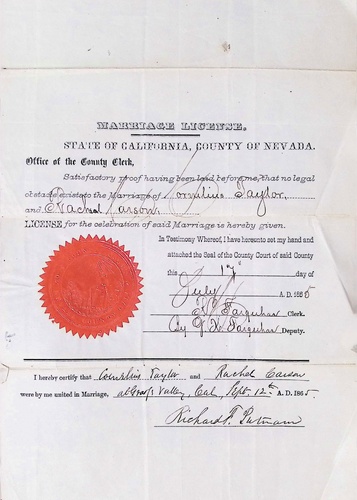 MARRIAGE LICENSE.
STATE OF CALIFORNIA, COUNTY OF NEVADA.
Office of the County Clerk,
Satisfactory proof having been laid before me, that no legal
obstacle exists to the Marriage of Cornelius Taylor,
and Rachel Carson,
LICENSE for the celebration of said Marriage is hereby given.
In Testimony Whereof, I have hereunto set my hand and
attached the Seal of the County Court of said County
this 17 day of
July A. D. 1865
R. Farquhar Clerk.
By J. H. Farquhar Deputy.
I hereby certify that Cornelius Taylor and Rachel Carson
were by me united in Marriage, at Grass Valley, Cal, Sept. 12th A. D. 1865.
Richard F. Putnam